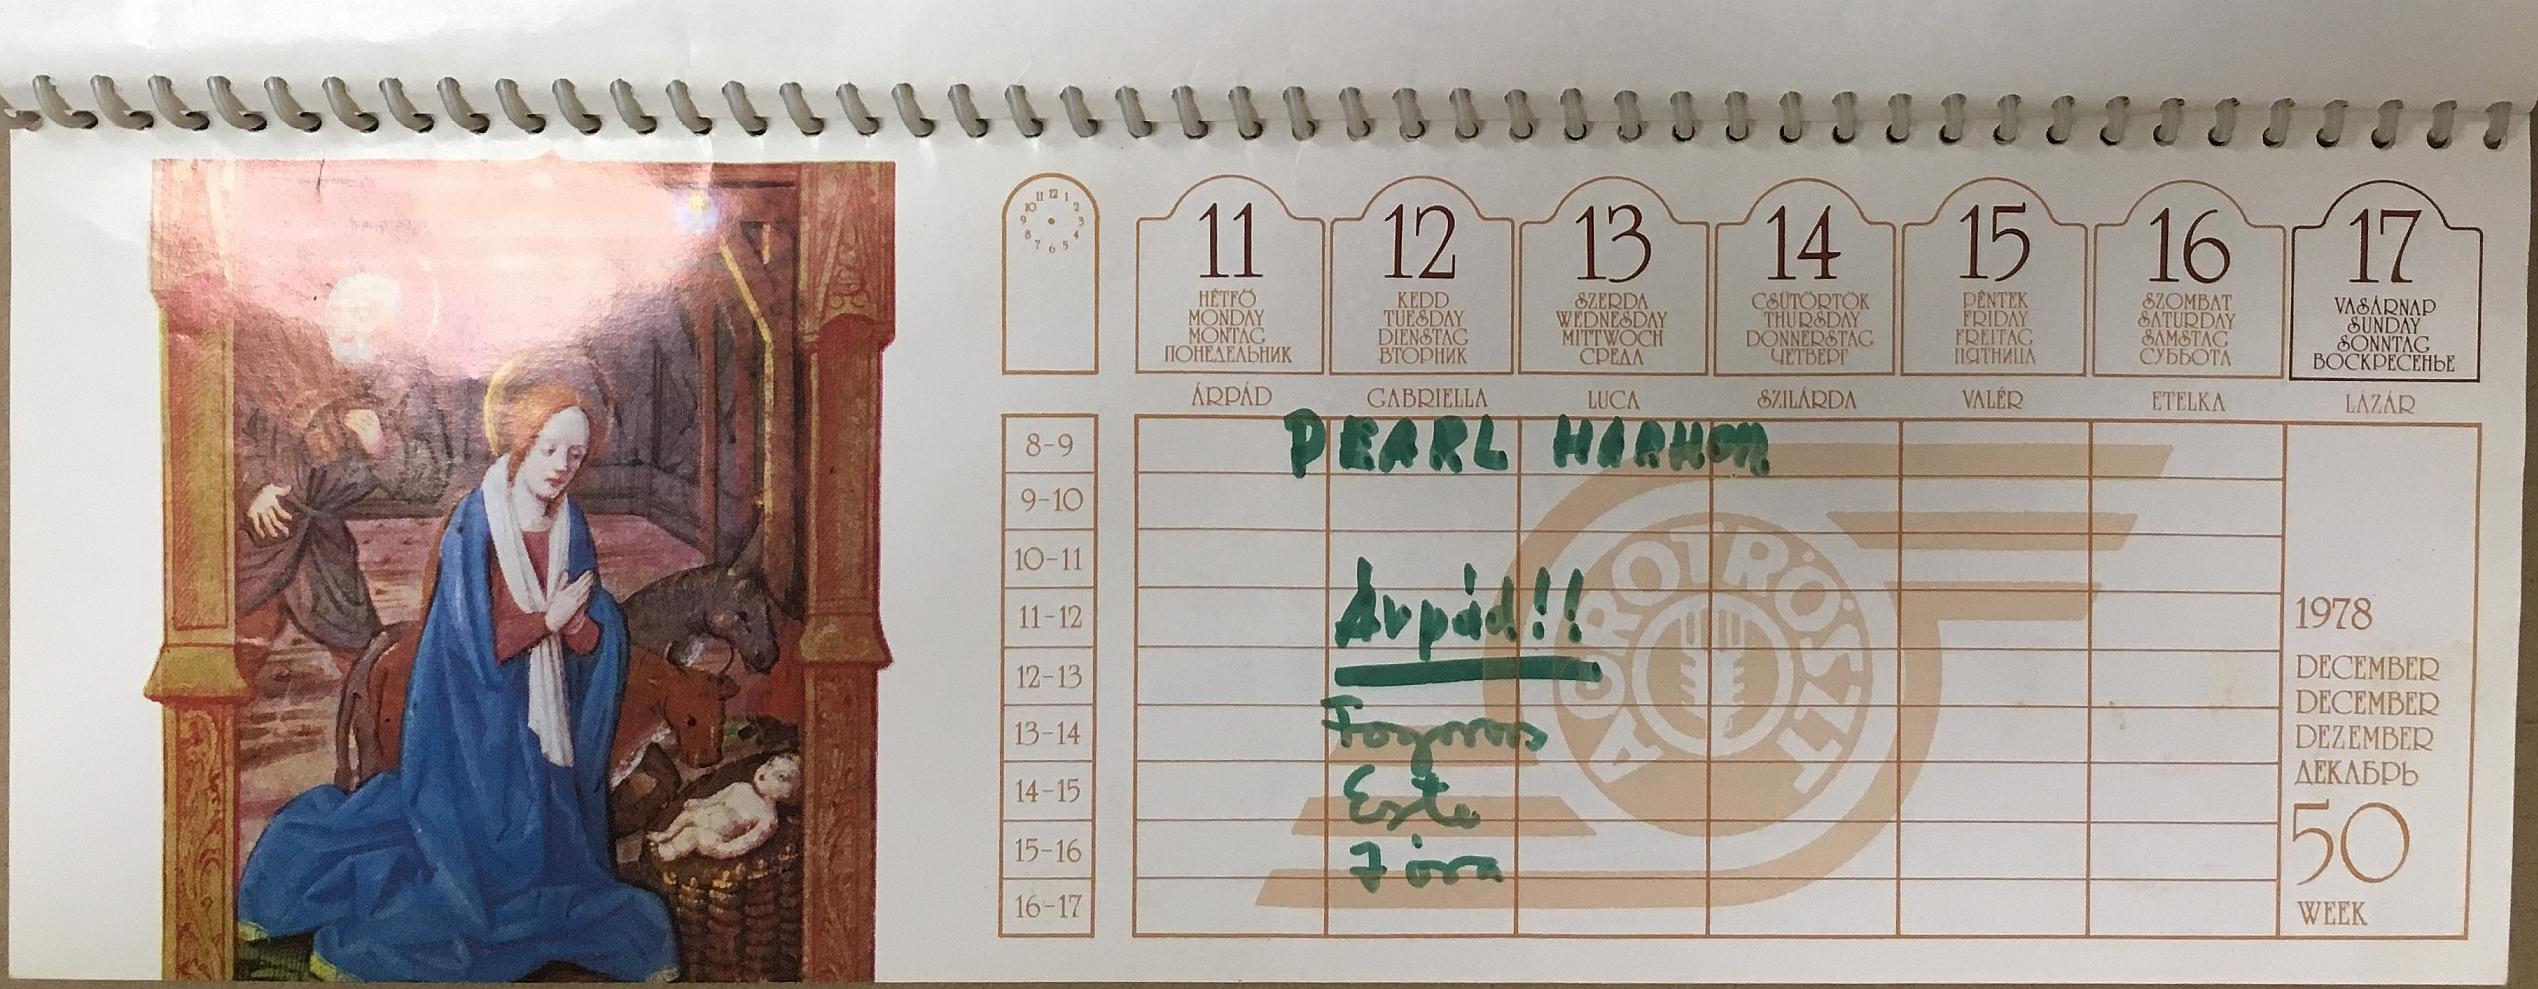 12 1 2 3 4 5 6 7 8 9 10 11
11 12 13 14 15 16 17
HÉTFŐ KEDD SZERDA CSÜTÖRTÖK PÉNTEK SZOMBAT VASÁRNAP
MONDAY TUESDAY WEDNESDAY THURSDAY FRIDAY SATURDAY SUNDAY
MONTAG DIENSTAG MITTWOCH DONNERSTAG FREITAG SAMSTAG SONNTAG
ПОНЕДЕЛЬНИК ВТОРНИК СРЕДА ЧЕТВЕРГ ПЯТНИЦА СУББОТА ВОСКРЕСЕНЬЕ
ÁRPÁD GABRIELLA LUCA SZILÁRDA VALÉR ETELKA LÁZÁR
8-9 PEARL HARHOR
9-10
10-11
11-12 Árpád!!
12-13
13-14 Fogorvos
14-15 Este
15-16 7 óra
16-17
AGROTRÖSZT
1978
DECEMBER
DECEMBER
DEZEMBER
ДЕКАБРЬ
50
WEEK